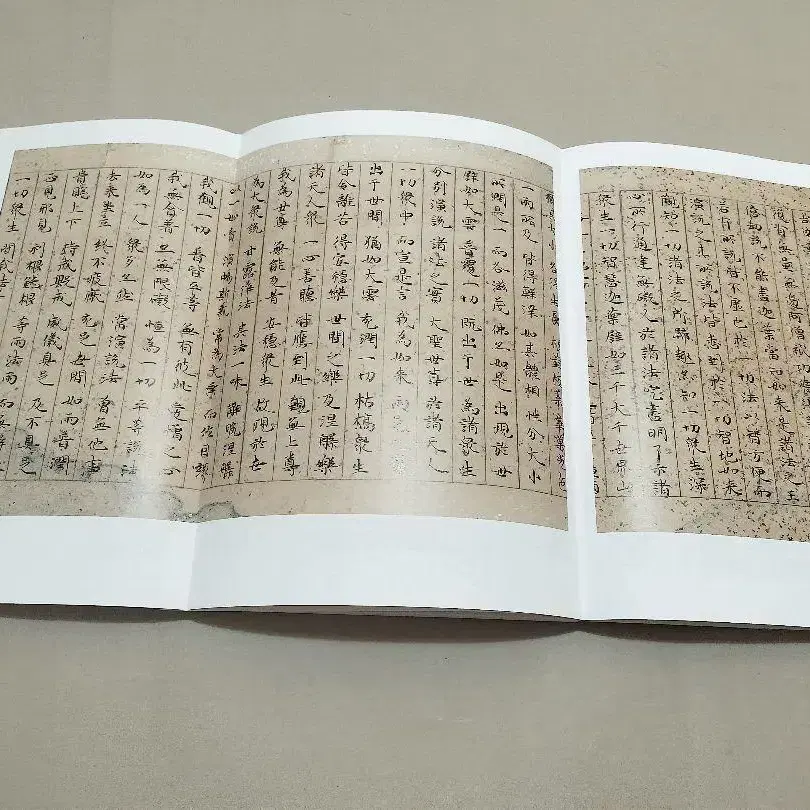 億劫說不能盡迦葉當知如來是諸法之王
若有所說皆不虛也於一切法以智方便而
演說之其所說法皆悉到於一切智地如來
觀知一切諸法之所歸趣亦知一切衆生深
心所行通達無礙又於諸法究盡明了示諸
衆生一切智慧迦葉譬如三千大千世界山
一雨所及 皆得鮮澤 如其體相 性分大小
所潤是一 而各滋茂 佛亦如是 出現於世
譬如大雲 普覆一切 旣出于世 爲諸衆生
分別演說 諸法之實 大聖世尊 於諸天人
一切衆中 而宣是言 我爲如來 兩足之尊
出于世間 猶如大雲 充潤一切 枯槁衆生
皆令離苦 得安穩樂 世間之樂 及涅槃樂
諸天人衆 一心善聽 皆應到此 覲無上尊
我爲世尊 無能及者 安穩衆生 故現於世
爲大衆說 甘露淨法 其法一味 解脫涅槃
以一妙音 演暢斯義 常爲大乘 而作因緣
我觀一切 普皆平等 無有彼此 愛憎之心
我無貪著 亦無限礙 恒爲一切 平等說法
如爲一人 衆多亦然 常演說法 曾無他事
去來坐立 終不疲厭 充足世間 如雨普潤
貴賤上下 持戒毀戒 威儀具足 及不具足
正見邪見 利根鈍根 等雨法雨 而無
一切衆生 聞我法